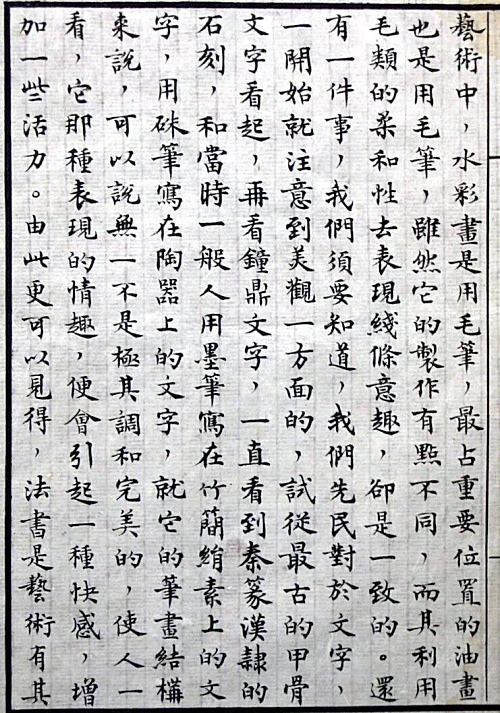 藝術中，水彩畫是用毛筆，最占重要位置的油畫
也是用毛筆，雖然它的製作有點不同，而其利用
毛類的柔和性去表現綫條意趣，卻是一致的。還
有一件事，我們須要知道，我們先民對於文字，
一開始就注意到美觀一方面的，試從最古的甲骨
文字看起，再看鐘鼎文字，一直看到秦篆漢隸的
石刻，和當時一般人用墨筆寫在竹蕑絹素上的文
字，用硃筆寫在陶器上的文字，就它的筆畫結構
來說，可以說無一不是極其調和完美的，使人一
看，它那種表現的情趣，便會引起一種快感，增
加一些活力。由此更可以見得，法書是藝術有其